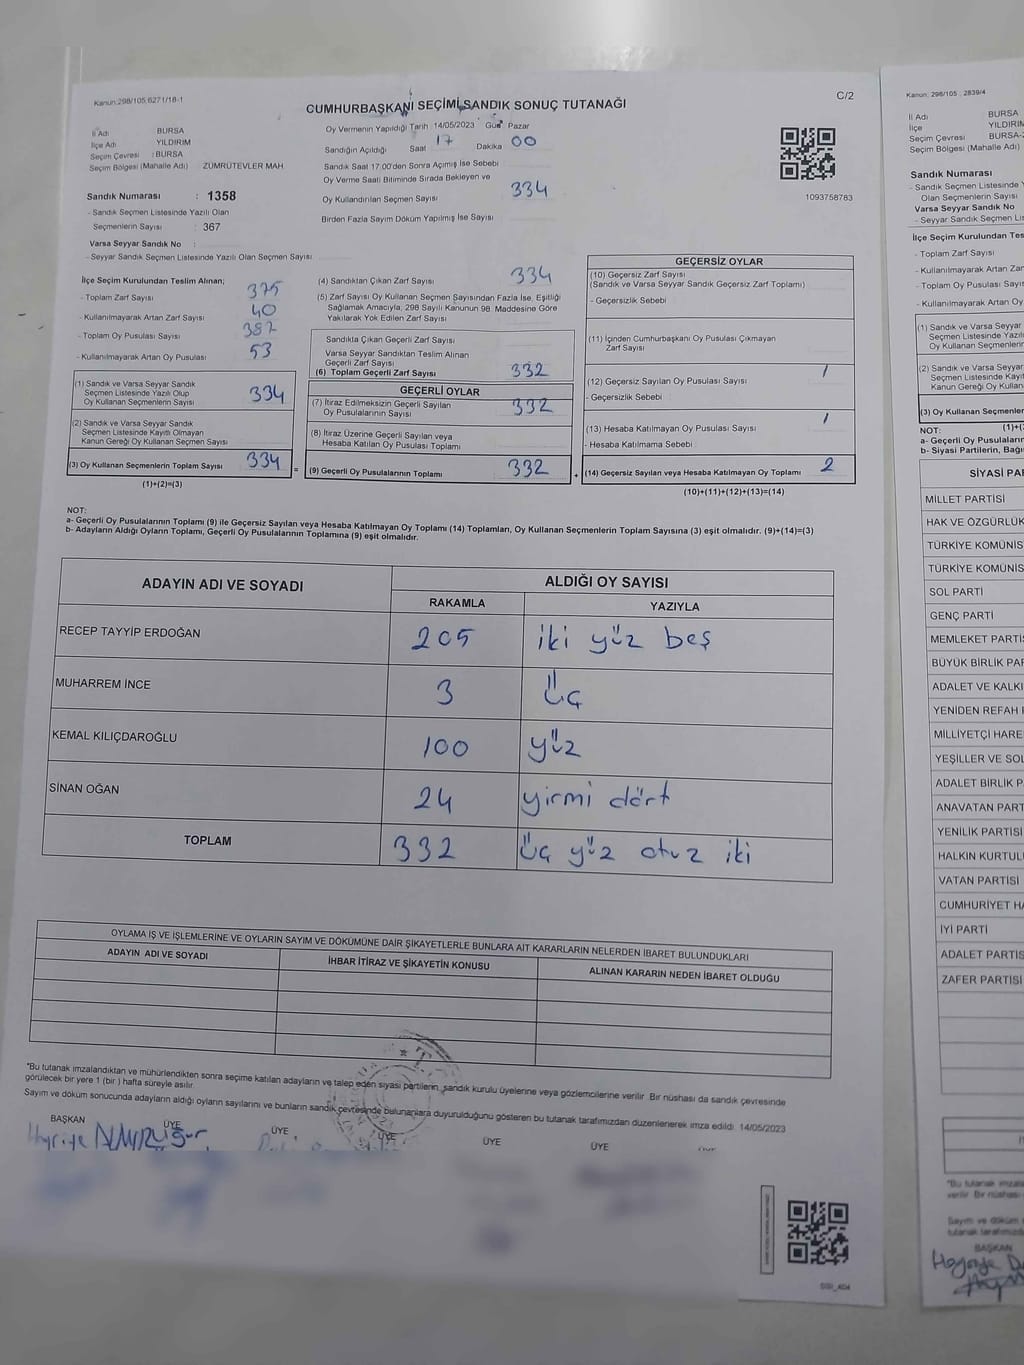 Kanun:298/105,6271/18-1
CUMHURBAŞKANI SEÇİMİ SANDIK SONUÇ TUTANAĞI
C/2
İl Adı BURSA
İlçe Adı YILDIRIM
Seçim Çevresi : BURSA
Seçim Bölgesi (Mahalle Adı) ZÜMRÜTEVLER MAH.
Oy Vermenin Yapıldığı Tarih 14/05/2023 Gün Pazar
Sandığın Açıldığı Saat 17 Dakika 00
Sandık Saat 17:00'den Sonra Açımış İse Sebebi
Oy Verme Saati Bitiminde Sırada Bekleyen ve
Oy Kullandırılan Seçmen Sayısı 334
Birden Fazla Sayım Döküm Yapılmış İse Sayısı
1093758783
Sandık Numarası : 1358
- Sandık Seçmen Listesinde Yazılı Olan
Seçmenlerin Sayısı : 367
Varsa Seyyar Sandık No :
- Seyyar Sandık Seçmen Listesinde Yazılı Olan Seçmen Sayısı
İlçe Seçim Kurulundan Teslim Alınan;
- Toplam Zarf Sayısı 375
- Kullanılmayarak Artan Zarf Sayısı 40
- Toplam Oy Pusulası Sayısı 387
- Kullanılmayarak Artan Oy Pusulası 53
(1) Sandık ve Varsa Seyyar Sandık
Seçmen Listesinde Yazılı Olup
Oy Kullanan Seçmenlerin Sayısı 334
(2) Sandık ve Varsa Seyyar Sandık
Seçmen Listesinde Kayıtlı Olmayan
Kanun Gereği Oy Kullanan Seçmen Sayısı
(3) Oy Kullanan Seçmenlerin Toplam Sayısı 334 =
(1)+(2)=(3)
(4) Sandıktan Çıkan Zarf Sayısı 334
(5) Zarf Sayısı Oy Kullanan Seçmen Sayısından Fazla İse, Eşitliği
Sağlamak Amacıyla; 298 Sayılı Kanunun 98. Maddesine Göre
Yakılarak Yok Edilen Zarf Sayısı
Sandıkla Çıkan Geçerli Zarf Sayısı
Varsa Seyyar Sandıktan Teslim Alınan
Geçerli Zarf Sayısı
(6) Toplam Geçerli Zarf Sayısı 332
GEÇERLİ OYLAR
(7) İtiraz Edilmeksizin Geçerli Sayılan
Oy Pusulalarının Sayısı 332
(8) İtiraz Üzerine Geçerli Sayılan veya
Hesaba Katılan Oy Pusulası Toplamı
(9) Geçerli Oy Pusulalarının Toplamı 332 +
GEÇERSİZ OYLAR
(10) Geçersiz Zarf Sayısı
(Sandık ve Varsa Seyyar Sandık Geçersiz Zarf Toplamı)
- Geçersizlik Sebebi
(11) İçinden Cumhurbaşkanı Oy Pusulası Çıkmayan
Zarf Sayısı
(12) Geçersiz Sayılan Oy Pusulası Sayısı 1
- Geçersizlik Sebebi
(13) Hesaba Katılmayan Oy Pusulası Sayısı 1
- Hesaba Katılmama Sebebi
(14) Geçersiz Sayılan veya Hesaba Katılmayan Oy Toplamı 2
(10)+(11)+(12)+(13)=(14)
NOT:
a- Geçerli Oy Pusulalarının Toplamı (9) ile Geçersiz Sayılan veya Hesaba Katılmayan Oy Toplamı (14) Toplamları, Oy Kullanan Seçmenlerin Toplam Sayısına (3) eşit olmalıdır. (9)+(14)=(3)
b- Adayların Aldığı Oyların Toplamı, Geçerli Oy Pusulalarının Toplamına (9) eşit olmalıdır.
ADAYIN ADI VE SOYADI ALDIĞI OY SAYISI
RAKAMLA YAZIYLA
RECEP TAYYİP ERDOĞAN 205 iki yüz beş
MUHARREM İNCE 3 Üç
KEMAL KILIÇDAROĞLU 100 yüz
SİNAN OĞAN 24 yirmi dört
TOPLAM 332 Üç yüz otuz iki
OYLAMA İŞ VE İŞLEMLERİNE VE OYLARIN SAYIM VE DÖKÜMÜNE DAİR ŞİKAYETLERLE BUNLARA AİT KARARLARIN NELERDEN İBARET BULUNDUKLARI
ADAYIN ADI VE SOYADI İHBAR İTİRAZ VE ŞİKAYETİN KONUSU ALINAN KARARIN NEDEN İBARET OLDUĞU
"Bu tutanak imzalandıktan ve mühürlendikten sonra seçime katılan adayların ve talep eden siyasi partilerin ,sandık kurulu üyelerine veya gözlemcilerine verilir. Bir nüshası da sandık çevresinde
görülecek bir yere 1 (bir ) hafta süreyle asılır.
Sayım ve döküm sonucunda adayların aldığı oyların sayılarını ve bunların sandık çevresinde bulunanlara duyurulduğunu gösteren bu tutanak tarafımızdan düzenlenerek imza edildi. 14/05/2023
BAŞKAN ÜYE ÜYE ÜYE ÜYE ÜYE
Kanun: 298/105 , 2839/4
İl Adı BURSA
İlçe YILDIRIM
Seçim Çevresi BURSA-2
Seçim Bölgesi (Mahalle Adı)
Sandık Numarası
- Sandık Seçmen Listesinde
Olan Seçmenlerin Sayısı
Varsa Seyyar Sandık No
- Seyyar Sandık Seçmen
İlçe Seçim Kurulundan Tes
- Toplam Zarf Sayısı
- Kullanılmayarak Artan Zar
- Toplam Oy Pusulası Sayısı
- Kullanılmayarak Artan Oy
(1) Sandık ve Varsa Seyyar
Seçmen Listesinde Yazılı
Oy Kullanan Seçmenlerin
(2) Sandık ve Varsa Seyyar
Seçmen Listesinde Kayıt
Kanun Gereği Oy Kullan
(3) Oy Kullanan Seçmenler
NOT:
a- Geçerli Oy Pusulaların
b- Siyasi Partilerin, Bağı
SİYASİ PA
MİLLET PARTİSİ
HAK VE ÖZGÜRLÜK
TÜRKİYE KOMÜNİS
TÜRKİYE KOMÜNİS
SOL PARTİ
GENÇ PARTİ
MEMLEKET PARTİS
BÜYÜK BİRLİK PAR
ADALET VE KALKI
YENİDEN REFAH
MİLLİYETÇİ HARE
YEŞİLLER VE SOL
ADALET BİRLİK P
ANAVATAN PART
YENİLİK PARTİSİ
HALKIN KURTUL
VATAN PARTİSİ
CUMHURİYET HA
İYİ PARTİ
ADALET PARTİS
ZAFER PARTİSİ
"Bu tutanak imzala
verilir. Bir nüshası
Sayım ve döküm
tutanak tarafımızd
BAŞKAN